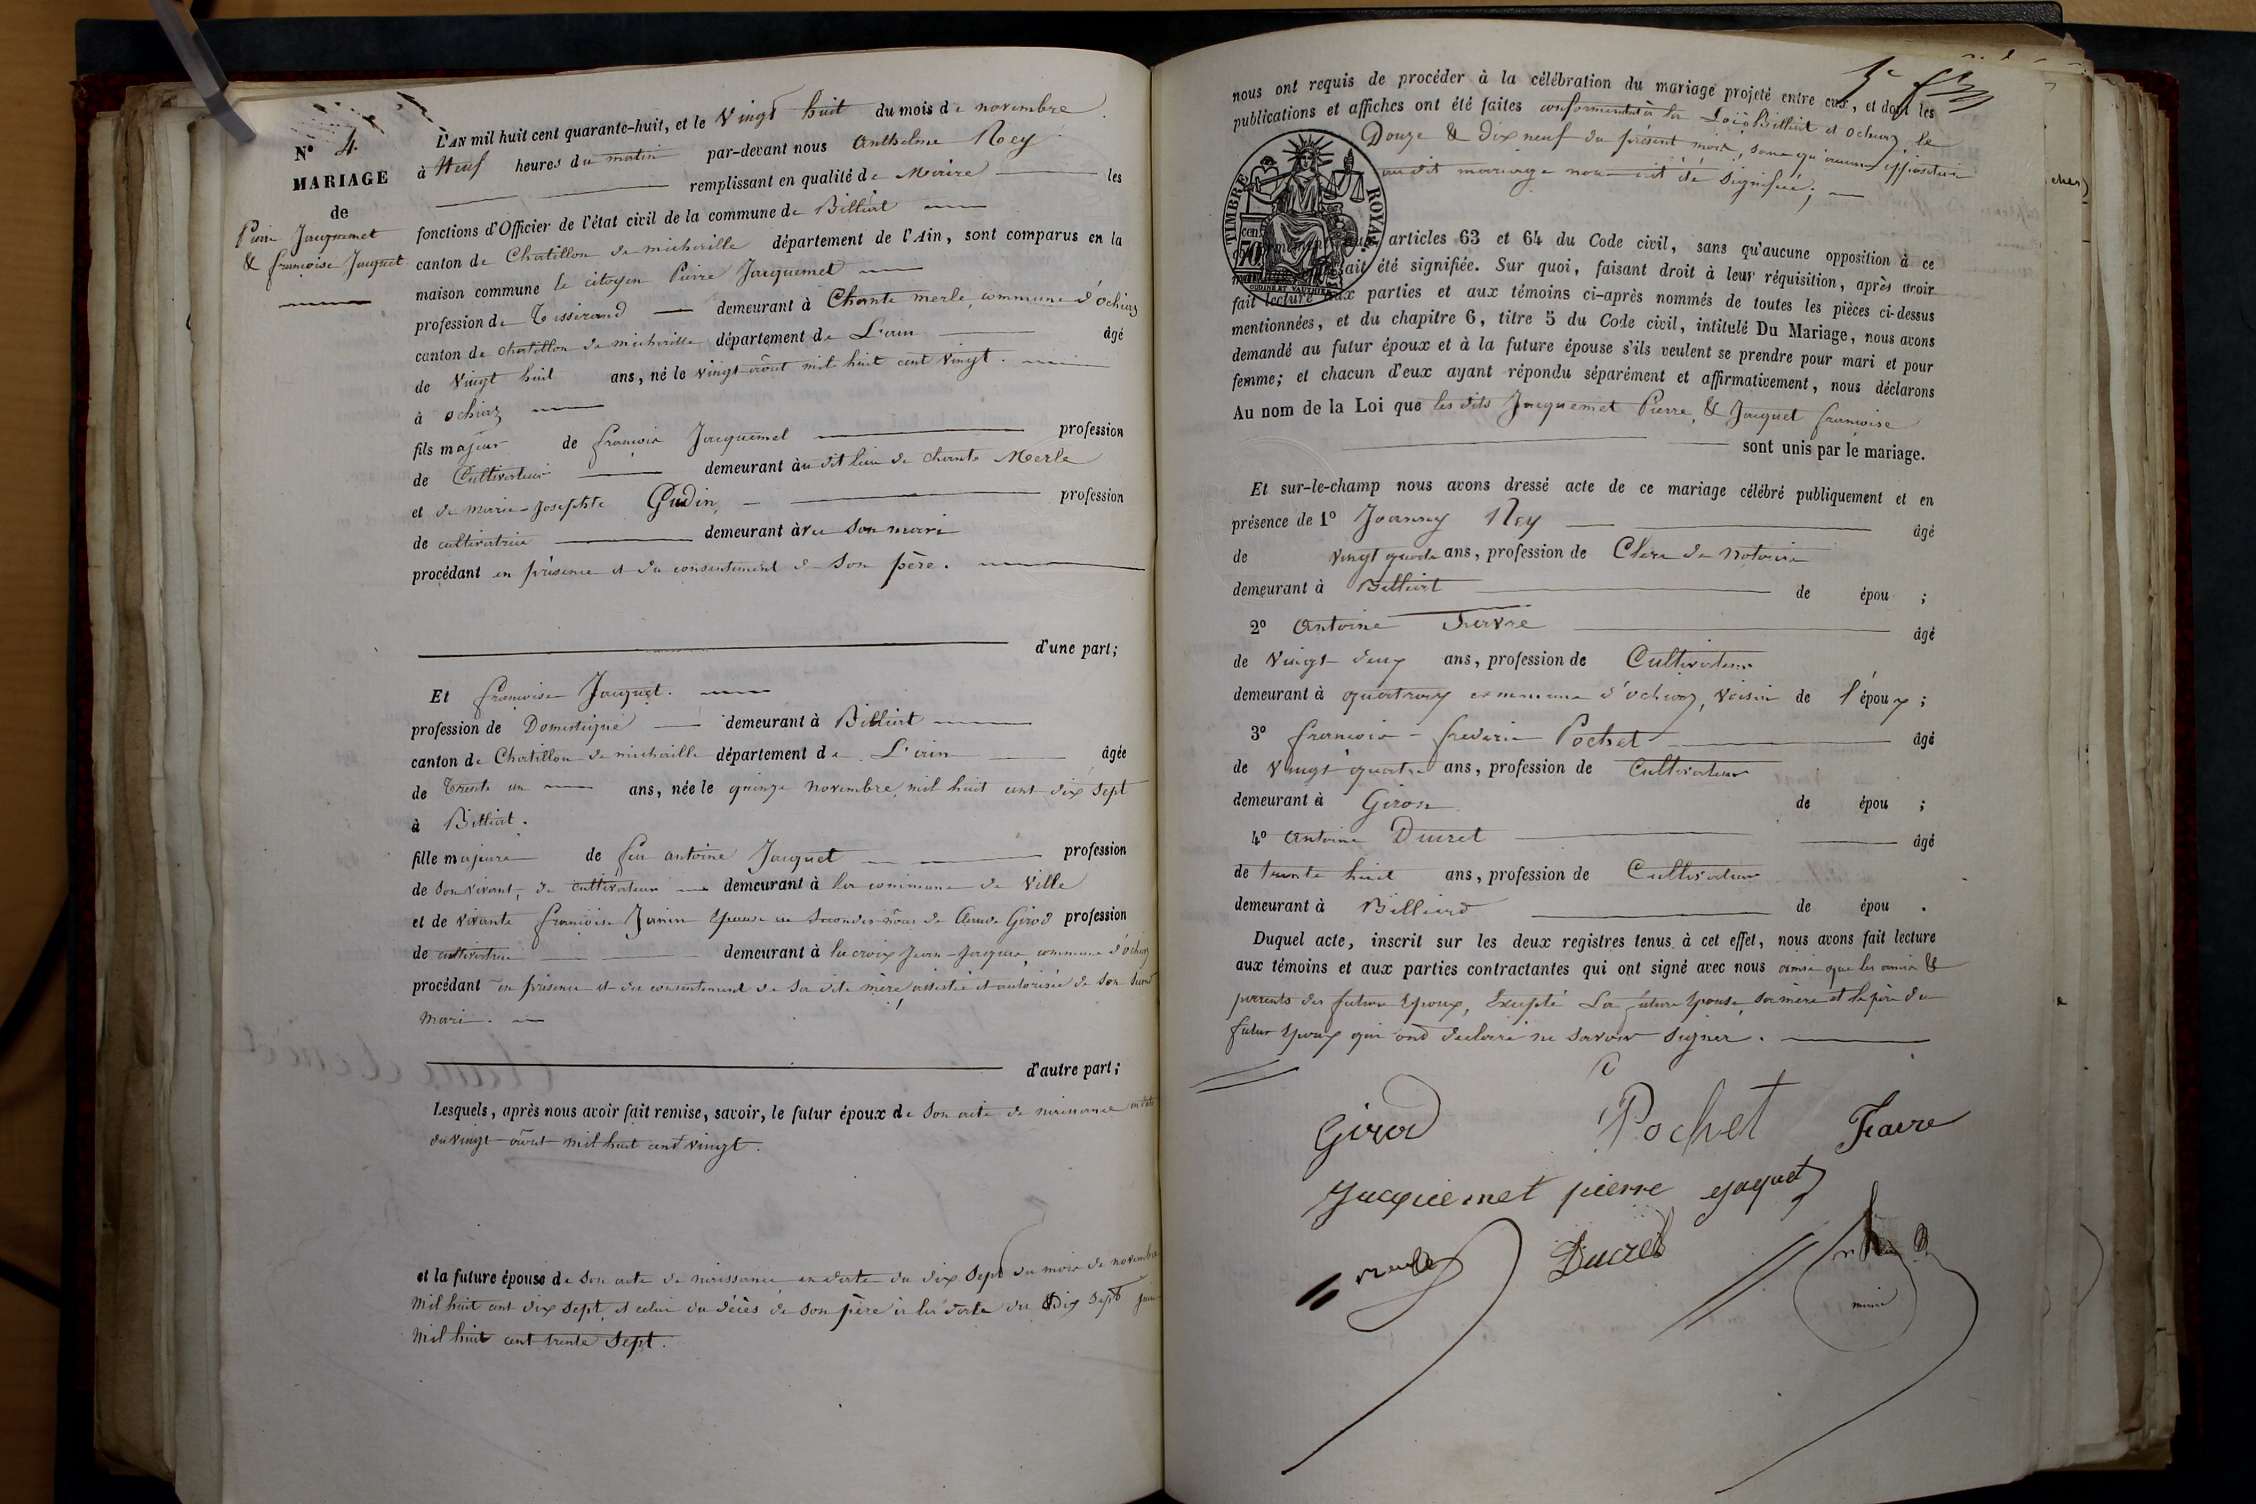 N° 4
MARIAGE
de
Pierre Jacquemet
& françoise Jacquet
L'AN mil huit cent quarante-huit, et le Vingt huit du mois de novembre
à Neuf heures du matin par-devant nous Anthelme Rey
remplissant en qualité de Maire les
fonctions d'Officier de l'état civil de la commune de Billiat
canton de Chatillon de michaille département de l'Ain, sont comparus en la
maison commune le citoyen Pierre Jacquemet
profession de Tisserand demeurant à Chante merle commune d'ochiaz
canton de chatillon de michaille département de L'ain âgé
de Vingt huit ans, né le vingt août mil huit cent vingt.
à ochiaz
fils majeur de françois Jacquemet profession
de Cultivateur demeurant au dit lieu de chante Merle
et de marie-josephte Gudin, profession
de cultivatrice demeurant avec son mari
procédant en présence et du consentement de son père.
d'une part;
Et françoise Jacquet.
profession de Domestique demeurant à Billiat
canton de Chatillon de michaille département de L'ain âgée
de Trente un ans, née le quinze novembre mil huit cent dix sept
à Billiat.
fille majeure de feu antoine Jacquet profession
de son vivant, de cultivateur demeurant à la commune de Ville
et de vivante françoise Janin épouse en secondes de Girod profession
de cultivatrice demeurant à lacroix jean-jacques, commune d'ochiaz
procédant en présence et du consentement de sa dite mère assistée et autorisée de son
mari.
d'autre part;
Lesquels, après nous avoir fait remise, savoir, le futur époux de son acte de naissance en date
du vingt août mil huit cent vingt.
et la future épouse de son acte de naissance en date du dix sept du mois de novembre
mil huit cent dix sept, et celui du décès de son père à la date du dix sept
mil huit cent trente sept.
nous ont requis de procéder à la célébration du mariage projeté entre eux, et dont les
publications et affiches ont été faites conformément à la Loi à Billiat et ochiaz le
Douze & dix neuf du présent mois, sans qu'aucune opposition
audit mariage nous ait été signifiée;
TIMBRE ROYAL
articles 63 et 64 du Code civil, sans qu'aucune opposition à ce
ait été signifiée. Sur quoi, faisant droit à leur réquisition, après avoir
fait lecture aux parties et aux témoins ci-après nommés de toutes les pièces ci-dessus
mentionnées, et du chapitre 6, titre 5 du Code civil, intitulé Du Mariage, nous avons
demandé au futur époux et à la future épouse s'ils veulent se prendre pour mari et pour
femme; et chacun d'eux ayant répondu séparément et affirmativement, nous déclarons
Au nom de la Loi que les dits Jacquemet Pierre & Jacquet françoise
sont unis par le mariage.
Et sur-le-champ nous avons dressé acte de ce mariage célébré publiquement et en
présence de 1° Joanny Rey âgé
de vingt quatre ans, profession de Clerc de Notaire
demeurant à Billiat de épou ;
2° Antoine Favre âgé
de Vingt deux ans, profession de Cultivateur
demeurant à commune d'ochiaz, voisin de l'époux ;
3° françois-frederic Pochet âgé
de Vingt quatre ans, profession de Cultivateur
demeurant à Giron de épou ;
4° Antoine Ducret âgé
de trente huit ans, profession de Cultivateur
demeurant à Billiard de épou .
Duquel acte, inscrit sur les deux registres tenus à cet effet, nous avons fait lecture
aux témoins et aux parties contractantes qui ont signé avec nous ainsi que les amis &
parents des futurs époux, Excepté La future épouse, sa mère et le père du
futur époux qui ont déclaré ne savoir signer.
Girod Pochet Favre
Jacquemet pierre Jaquet
Ducret
maire